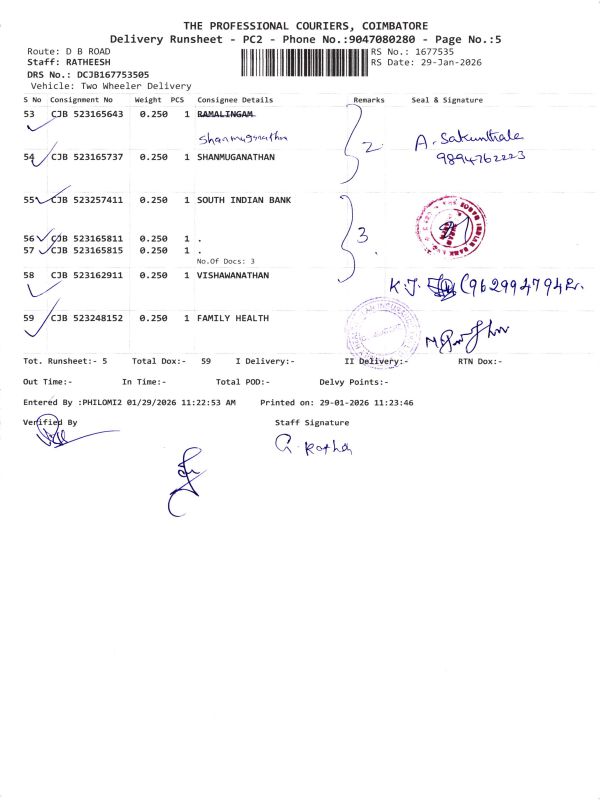 THE PROFESSIONAL COURIERS, COIMBATORE
Delivery Runsheet - PC2 - Phone No.:9047080280 - Page No.:5
Route: D B ROAD
RS No.: 1677535
Staff: RATHEESH
RS Date: 29-Jan-2026
DRS No.: DCJB167753505
Vehicle: Two Wheeler Delivery
S No Consignment No Weight PCS Consignee Details Remarks Seal & Signature
53 CJB 523165643 0.250 1 RAMALINGAM
Shanmuganathan
2 A. Sakunthale
9894762223
54 CJB 523165737 0.250 1 SHANMUGANATHAN
55 CJB 523257411 0.250 1 SOUTH INDIAN BANK
56 CJB 523165811 0.250 1 .
3
57 CJB 523165815 0.250 1 .
No.Of Docs: 3
58 CJB 523162911 0.250 1 VISHAWANATHAN
K.J. (9629947942.
59 CJB 523248152 0.250 1 FAMILY HEALTH
Tot. Runsheet:- 5 Total Dox:- 59 I Delivery:- II Delivery:- RTN Dox:-
Out Time:- In Time:- Total POD:- Delvy Points:-
Entered By :PHILOMI2 01/29/2026 11:22:53 AM Printed on: 29-01-2026 11:23:46
Verified By Staff Signature